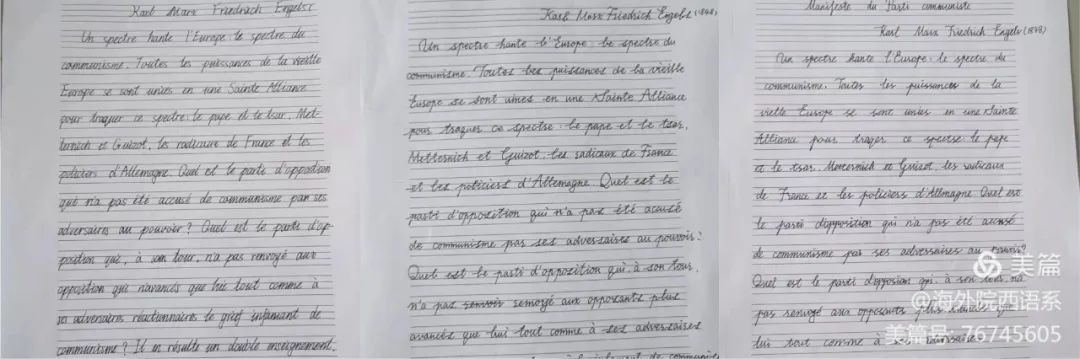 Karl Marx Friedrich Engels(
Un spectre hante l'Europe: le spectre du
communisme. Toutes les puissances de la vieille
Europe se sont unies en une Sainte Alliance
pour traquer ce spectre: le pape et le tsar, Met-
ternich et Guizot, les radicaux de France et les
policiers d'Allemagne. Quel est le parti d'opposition
qui n'a pas été accusé de communisme par ses
adversaires au pouvoir? Quel est le parti d'op-
position qui, à son tour, n'a pas renvoyé aux
opposition que lui tout comme à
ses adversaires réactionnaires le grief infamant de
communisme? Il en résulte un double enseignement.
Karl Marx Friedrich Engels (1848)
Un spectre hante l'Europe: le spectre du
communisme. Toutes les puissances de la vieille
Europe se sont unies en une Sainte Alliance
pour traquer ce spectre: le pape et le tsar,
Metternich et Guizot, les radicaux de France
et les policiers d'Allemagne. Quel est le
parti d'opposition qui n'a pas été acusé
de communisme par ses adversaires au pouvoir?
Quel est le parti d'opposition qui, à son tour,
n'a pas renvoyé aux opposants plus
avancés que lui tout comme à ses adversaires
Manifeste du Parti communiste
Karl Marx Friedrich Engels (1848)
Un spectre hante l'Europe: le spectre du
communisme. Toutes les puissances de la
vieille Europe se sont unies en une Sainte
Alliance pour traquer ce spectre: le pape
et le tsar, Metternich et Guizot, les radicaux
de France et les policiers d'Allmagne. Quel est
le parti d'opposition qui n'a pas été accusé
de communisme par ses adversaires au
Quel est le parti qui, à son tour, n'a
pas renvoyé aux opposants plus
lui tout comme à ses
美篇
@海外院西语系
美篇号: 76745605